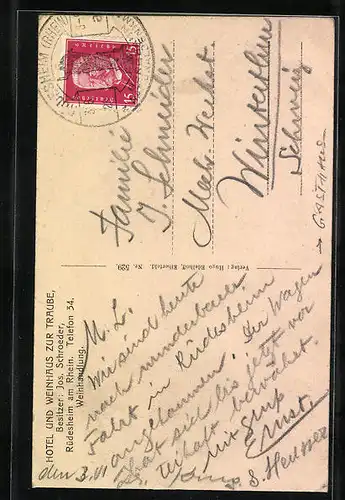 HOTEL UND WEINHAUS ZUR TRAUBE,
Besitzer: Jos. Schroeder,
Rüdesheim am Rhein. Telefon 34.
Weinhandlung.
den 3. VI
M. L.
Wir sind heute
nach wunderbarer
Fahrt in Rüdesheim
angekommen. Der Wagen
hat sich bis jetzt vor
bewährt.
mit
Ernst.
S. Heusser
Verlag: Hugo Edelhoff, Elberfeld. Nr. 529.
Familie
J. Schneider
Mech.
Winterthur
Schweiz
→ GASTHAUS
15 15
Deutsches Reich